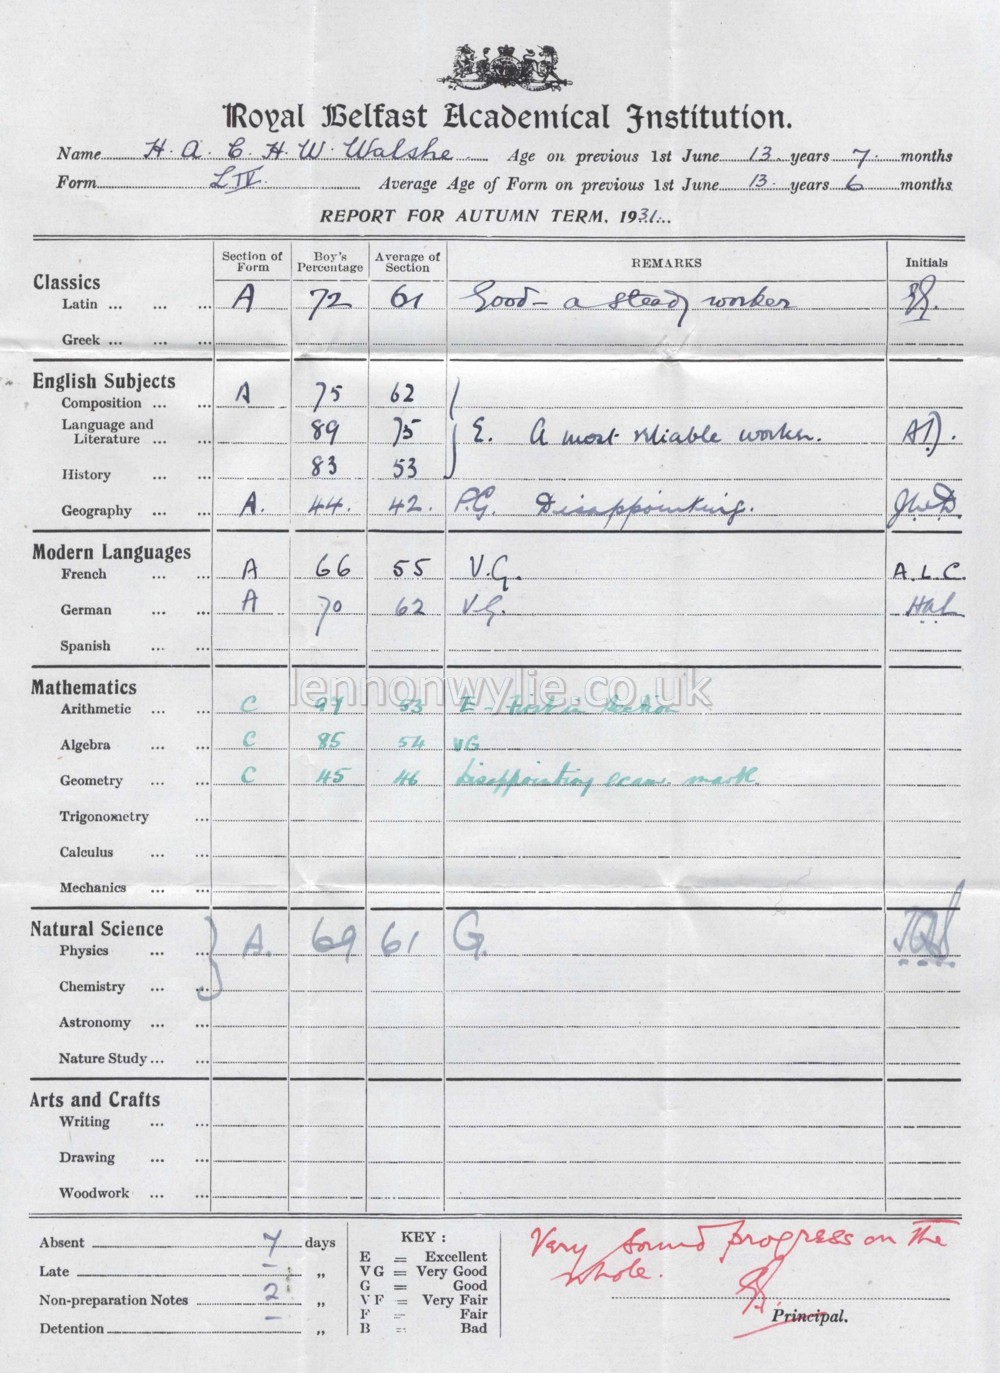 Royal Belfast Academical Institution.
Name H. A. C. H. W. Walshe Age on previous 1st June 13 years 7 months
Form L IV. Average Age of Form on previous 1st June 13 years 6 months
REPORT FOR AUTUMN TERM, 1931
Section of Form Boy's Percentage Average of Section REMARKS Initials
Classics
Latin ... ... ... A 72 61 Good - a steady worker
Greek ... ... ...
English Subjects
Composition ... ... A 75 62
Language and
Literature ... ... 89 75 E. A most reliable worker.
History ... ... 83 53
Geography ... ... A. 44. 42. P.G. Disappointing. JWD
Modern Languages
French ... ... A 66 55 V.G. A.L.C.
German ... ... A 70 62 VG.
Spanish ... ...
Mathematics
lennonwylie.co.uk
Arithmetic ... ... C 97 53 E - First in Section
Algebra ... ... C 85 54 VG
Geometry ... ... C 45 46 Disappointing exam. mark.
Trigonometry ...
Calculus ... ...
Mechanics ... ...
Natural Science
Physics ... ... A. 69 61 G.
Chemistry ... ...
Astronomy ... ...
Nature Study ... ...
Arts and Crafts
Writing ... ...
Drawing ... ...
Woodwork ... ...
Absent 7 days
Late - „
Non-preparation Notes 2 „
Detention - „
KEY :
E = Excellent
VG = Very Good
G = Good
VF = Very Fair
F = Fair
B = Bad
Very sound progress on the
whole.
Principal.